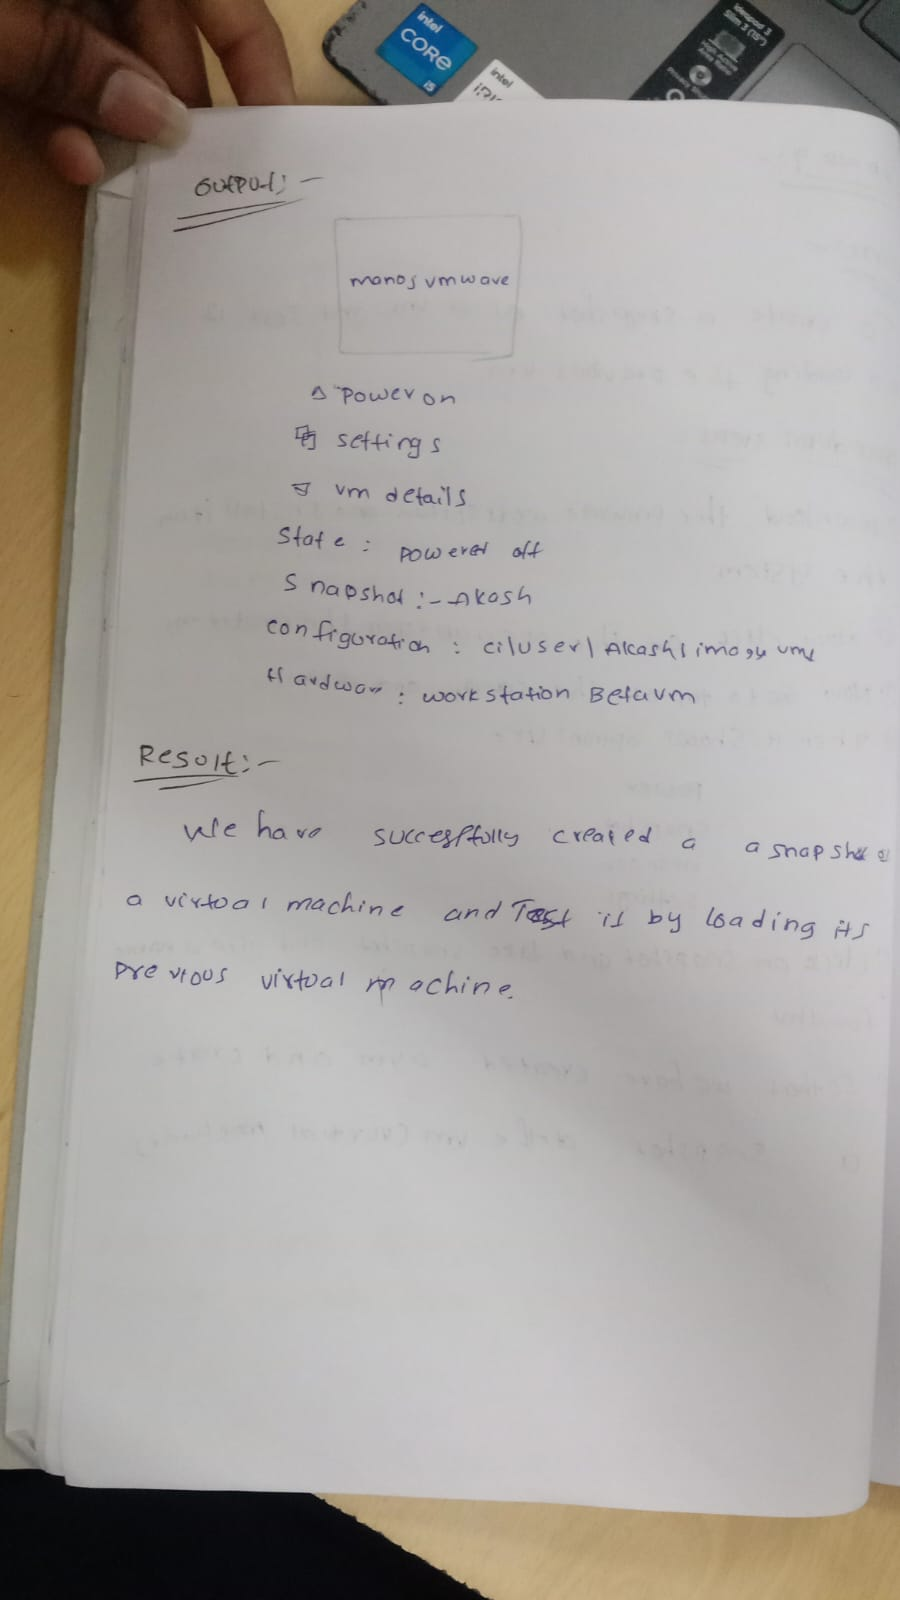 intel
CORE
i5
intel
ideapad 3
Slim 3 (15")
Output:-
manos vmwave
Power on
settings
vm details
State : powered off
Snapshot :- Akash
configuration : c:\user\Akash\
Hardwar : workstation Betavm
Result:-
We have successfully created a a snapshot
a virtual machine and Test it by loading its
previous virtual machine.